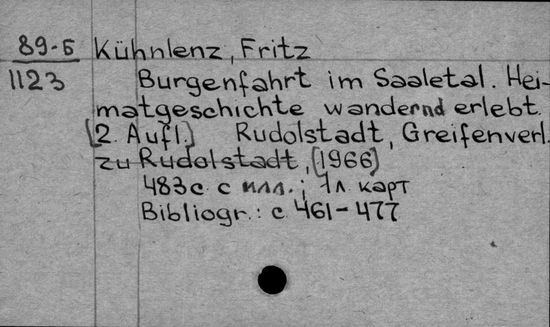 89-5 Kühnlenz, Fritz
1123 Burgenfahrt im Saaletal. Hei-
matgeschichte wandernd erlebt.
[2. Aufl.] Rudolstadt, Greifenverl.
zu Rudolstadt, [1966]
483с. с илл.; 1л. карт
Bibliogr.: с 461-477